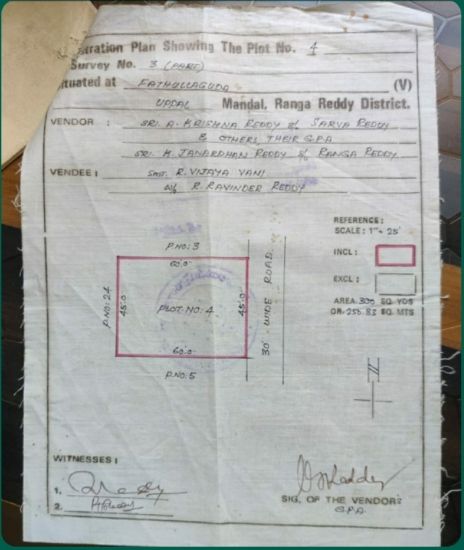 tration Plan Showing The Plot No. 4
Survey No. 3 (PART)
ituated at FATHULLAGUDA (V)
UPPAL Mandal, Ranga Reddy District.
VENDOR : SRI. A. KRISHNA REDDY S/o SARVA REDDY
& OTHERS, THEIR G.P.A
SRI. M. JANARDHAN REDDY S/o RANGA REDDY
VENDEE : SMT. R. VIJAYA VANI
W/o R. RAVINDER REDDY
REFERENCE :
SCALE : 1" = 25'
INCL :
EXCL :
AREA 300 SQ. YDS
OR 255.83 SQ. MTS
P.NO: 3
60.0"
P.NO: 24
45.0"
PLOT. NO. 4
45.0"
30' WIDE ROAD
60.0"
P.NO: 5
N
WITNESSES :
1.
2.
SIG. OF THE VENDORS
G.P.A.